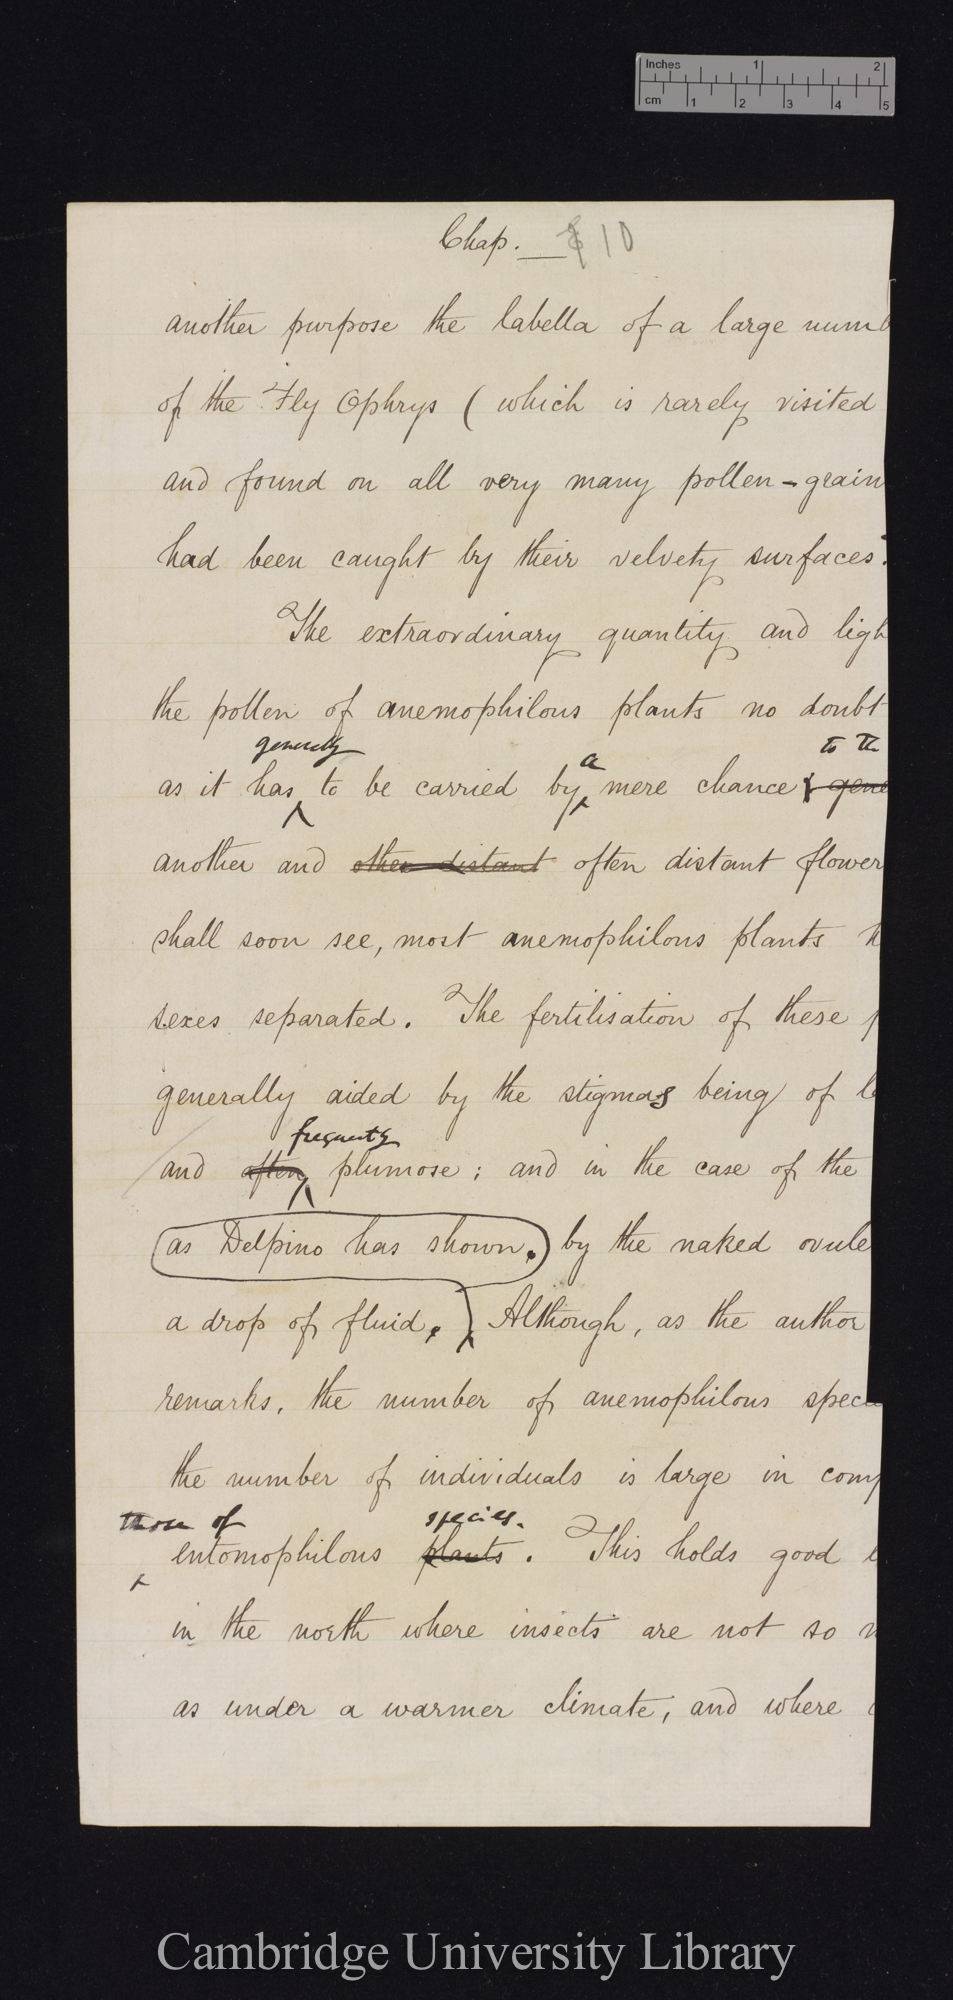 Inches 1 2
cm 1 2 3 4 5
Chap. 10
another purpose the labella of a large numb
of the Fly Ophrys (which is rarely visited
and found on all very many pollen-grain
had been caught by their velvety surfaces.
The extraordinary quantity and ligh
the pollen of anemophilous plants no doubt
generally a to th
as it has to be carried by mere chance gene
another and other distant often distant flower
shall soon see, most anemophilous plants
sexes separated. The fertilisation of these p
generally aided by the stigmas being of l
frequently
and often plumose; and in the case of the
as Delpino has shown. by the naked ovule
a drop of fluid. Although, as the author
remarks, the number of anemophilous specie
the number of individuals is large in comp
those of species.
entomophilous plants. This holds good
in the north where insects are not so
as under a warmer climate, and where
Cambridge University Library